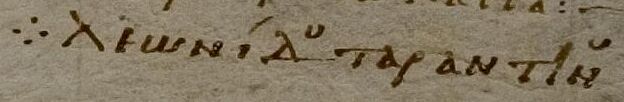 ⁘ λεωνίδου ταραντίνου